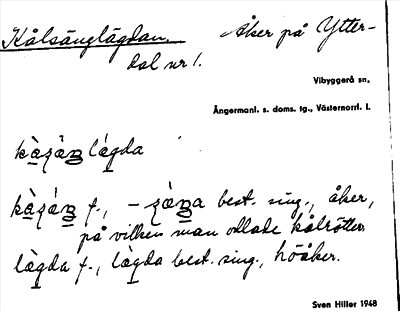 Kålsänglägdan. Åker på Ytter-
dal nr 1.
Vibyggerå sn,
Ångermanl. s. doms. tg., Västernorrl. l.
lägda
f., best. sing., åker,
på vilken man odlade kålrötter.
lägda f., lägda best. sing., höåker.
Sven Hiller 1948